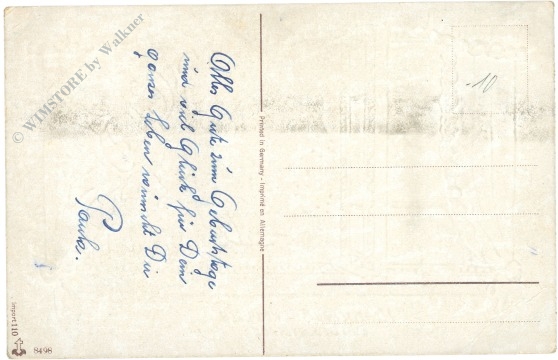 Alles Gute zum Geburtstage
und viel Glück für Dein
ganzes Leben wünscht Dir
Paula.
Printed in Germany - Imprimé en Allemagne
-10
import 110
8498
© WIMSTORE by Walkner